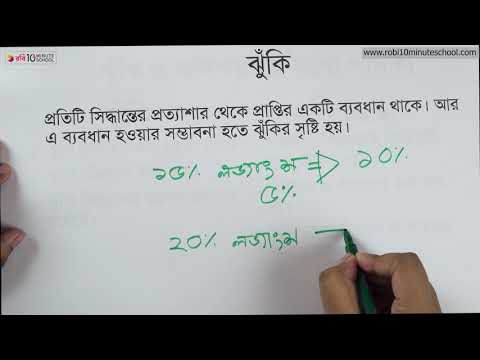 রবি 10 MINUTE SCHOOL
www.robi10minuteschool.com
ঝুঁকি
প্রতিটি সিদ্ধান্তের প্রত্যাশার থেকে প্রাপ্তির একটি ব্যবধান থাকে। আর
এ ব্যবধান হওয়ার সম্ভাবনা হতে ঝুঁকির সৃষ্টি হয়।
১৫% লভ্যাংশ => ১০%
৫%
২০% লভ্যাংশ